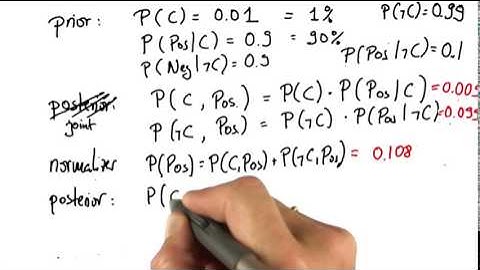 prior: P(C) = 0.01 = 1% P(¬C)=0.99
P(Pos|C) = 0.9 = 90%
P(Neg|¬C) = 0.9 P(Pos|¬C)=0.1
posterior: P(C, Pos) = P(C) · P(Pos|C) =0.009
joint P(¬C, Pos) = P(¬C) · P(Pos|¬C) =0.099
normalizer P(Pos) = P(C,Pos) + P(¬C,Pos) = 0.108
posterior: P(C